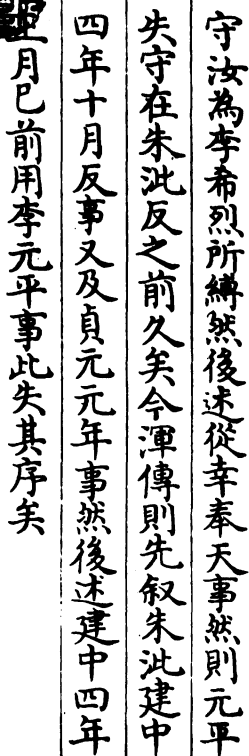 守汝為李希烈所縛然後述從幸奉天事然則元平
失守在朱泚反之前久矣今渾傳則先叙朱泚建中
四年十月反事又及貞元元年事然後述建中四年
正月巳前用李元平事此失其序矣